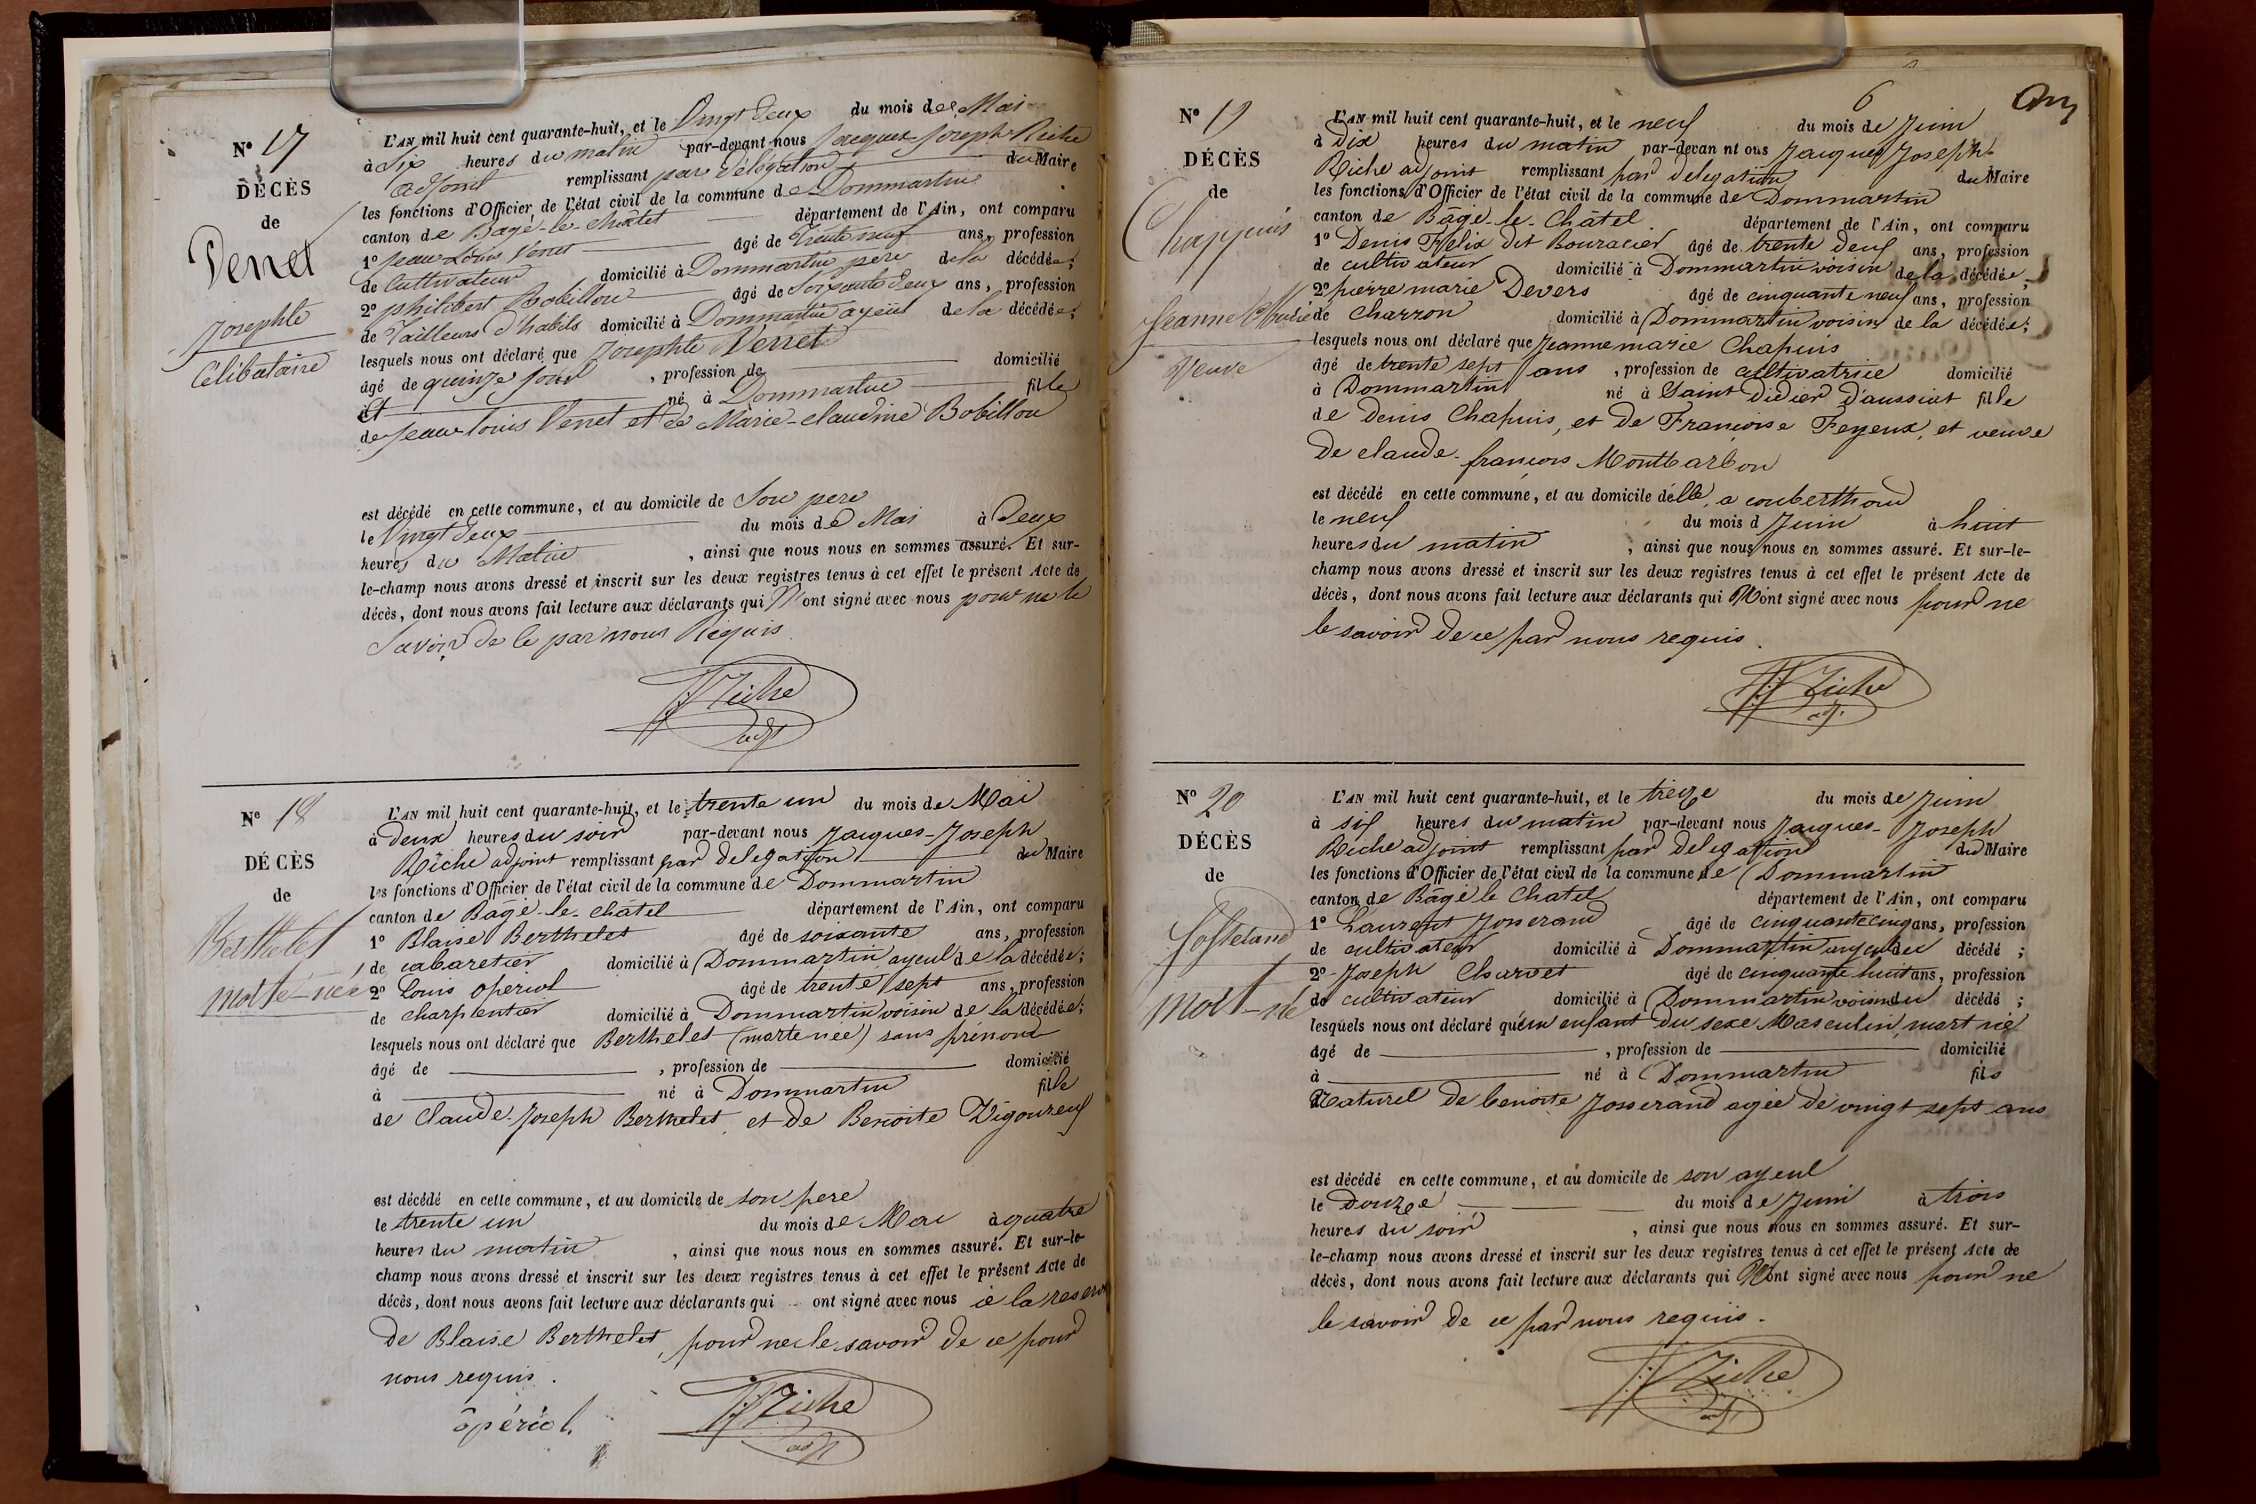 N° 17
DÉCÈS
de
Venet
Josephte
Célibataire
L'AN mil huit cent quarante-huit, et le Vingt Deux du mois de Mai
à Six heures du matin par-devant nous Jacques Joseph Riche
adjoint remplissant par Délégation du Maire
les fonctions d'Officier de l'état civil de la commune de Dommartin
canton de Bagé-le-Châtel département de l'Ain, ont comparu
1° Jean Louis Venet âgé de Trente neuf ans, profession
de Cultivateur domicilié à Dommartin pere de la décédée;
2° philibert Bobillon âgé de Soixante Deux ans, profession
de Tailleurs d'habits domicilié à Dommartin ayeul de la décédée;
lesquels nous ont déclaré que Josephte Venet
âgé de quinze jours , profession de domicilié
à né à Dommartin fille
de Jean Louis Venet et de Marie-claudine Bobillon
est décédé en cette commune, et au domicile de Son pere
le Vingt Deux du mois de Mai à Deux
heures du Matin , ainsi que nous nous en sommes assuré. Et sur-
le-champ nous avons dressé et inscrit sur les deux registres tenus à cet effet le présent Acte de
décès, dont nous avons fait lecture aux déclarants qui N'ont signé avec nous pour ne le
Savoir de ce par nous Requis
JJ Riche
adjt
N° 18
DÉCÈS
de
Berthelet
morte-née
L'AN mil huit cent quarante-huit, et le trente un du mois de Mai
à deux heures du soir par-devant nous Jacques-Joseph
Riche adjoint remplissant par delegation du Maire
les fonctions d'Officier de l'état civil de la commune de Dommartin
canton de Bâgé-le-châtel département de l'Ain, ont comparu
1° Blaise Berthelet âgé de soixante ans, profession
de cabaretier domicilié à Dommartin ayeul de la décédée;
2° Louis Opériol âgé de trente sept ans, profession
de charpentier domicilié à Dommartin voisin de la décédée;
lesquels nous ont déclaré que Berthelet (morte née) sans prénom
âgé de , profession de domicilié
à né à Dommartin fille
de Claude-Joseph Berthelet et de Benoite Vigoureux
est décédé en cette commune, et au domicile de son pere
le trente un du mois de Mai à quatre
heures du matin , ainsi que nous nous en sommes assuré. Et sur-le-
champ nous avons dressé et inscrit sur les deux registres tenus à cet effet le présent Acte de
décès, dont nous avons fait lecture aux déclarants qui ont signé avec nous à la reserve
de Blaise Berthelet, pour ne le savoir de ce pour
nous requis.
opériol.
JJ Riche
adjt
6
N° 19
DÉCÈS
de
Chappuis
Jeanne Marie
Veuve
L'AN mil huit cent quarante-huit, et le neuf du mois de Juin
à dix heures du matin par-devan nt ous Jacques Joseph
Riche adjoint remplissant par delegation du Maire
les fonctions d'Officier de l'état civil de la commune de Dommartin
canton de Bâgé-le-Châtel département de l'Ain, ont comparu
1° Denis Félix dit Bouracier âgé de trente deux ans, profession
de cultivateur domicilié à Dommartin voisin de la décédée;
2° pierre marie Devers âgé de cinquante neuf ans, profession
de charron domicilié à Dommartin voisin de la décédée;
lesquels nous ont déclaré que Jeanne marie Chapuis
âgé de trente sept ans , profession de cultivatrice domicilié
à Dommartin né à Saint Didier d'aussiat fille
de Denis Chapuis, et de Françoise Feyeux, et veuve
De claude-françois Montbarbon
est décédé en cette commune, et au domicile d'elle a couberthoud
le neuf du mois d Juin à huit
heures du matin , ainsi que nous nous en sommes assuré. Et sur-le-
champ nous avons dressé et inscrit sur les deux registres tenus à cet effet le présent Acte de
décès, dont nous avons fait lecture aux déclarants qui N'ont signé avec nous pour ne
le savoir de ce par nous requis.
JJ Riche
adj.
N° 20
DÉCÈS
de
Josserand
Mort-né
L'AN mil huit cent quarante-huit, et le treize du mois de Juin
à six heures du matin par-devant nous Jacques-Joseph
Riche adjoint remplissant par delegation du Maire
les fonctions d'Officier de l'état civil de la commune de Dommartin
canton de Bâgé le Chatel département de l'Ain, ont comparu
1° Laurent Josserand âgé de cinquante cinq ans, profession
de cultivateur domicilié à Dommartin ayeul du décédé ;
2° Joseph Charvet âgé de cinquante huit ans, profession
de cultivateur domicilié à Dommartin voisin du décédé ;
lesquels nous ont déclaré qu'un enfant du sexe Masculin mort né
âgé de , profession de domicilié
à né à Dommartin fils
Naturel de benoite Josserand agée de vingt sept ans
est décédé en cette commune, et au domicile de son ayeul
le Douze du mois de Juin à trois
heures du soir , ainsi que nous nous en sommes assuré. Et sur-
le-champ nous avons dressé et inscrit sur les deux registres tenus à cet effet le présent Acte de
décès, dont nous avons fait lecture aux déclarants qui N'ont signé avec nous pour ne
le savoir de ce par nous requis.
JJ Riche
adjt